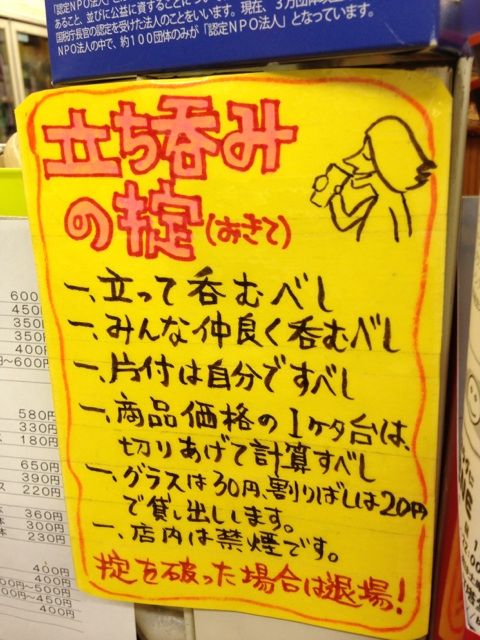 「認定NPO法人」と
あること、並びに公益に資することについ
国税庁長官の認定を受けた法人のことをいいます。現在、3万団体以
NPO法人の中で、約100団体のみが「認定NPO法人」となっています。
立ち呑み
の掟(おきて)
一、立って呑むべし
一、みんな仲良く呑むべし
一、片付は自分ですべし
一、商品価格の1ケタ台は、
切りあげて計算すべし
一、グラスは30円、割りばしは20円
で貸し出しします。
一、店内は禁煙です。
掟を破った場合は退場!
600
450
350円
350円
400円
円~600円
580円
330円
180円
650円
390円
ス 220円
本 360円
本 300円
本 230円
400円
400円
0円~500円
00~450円
400円